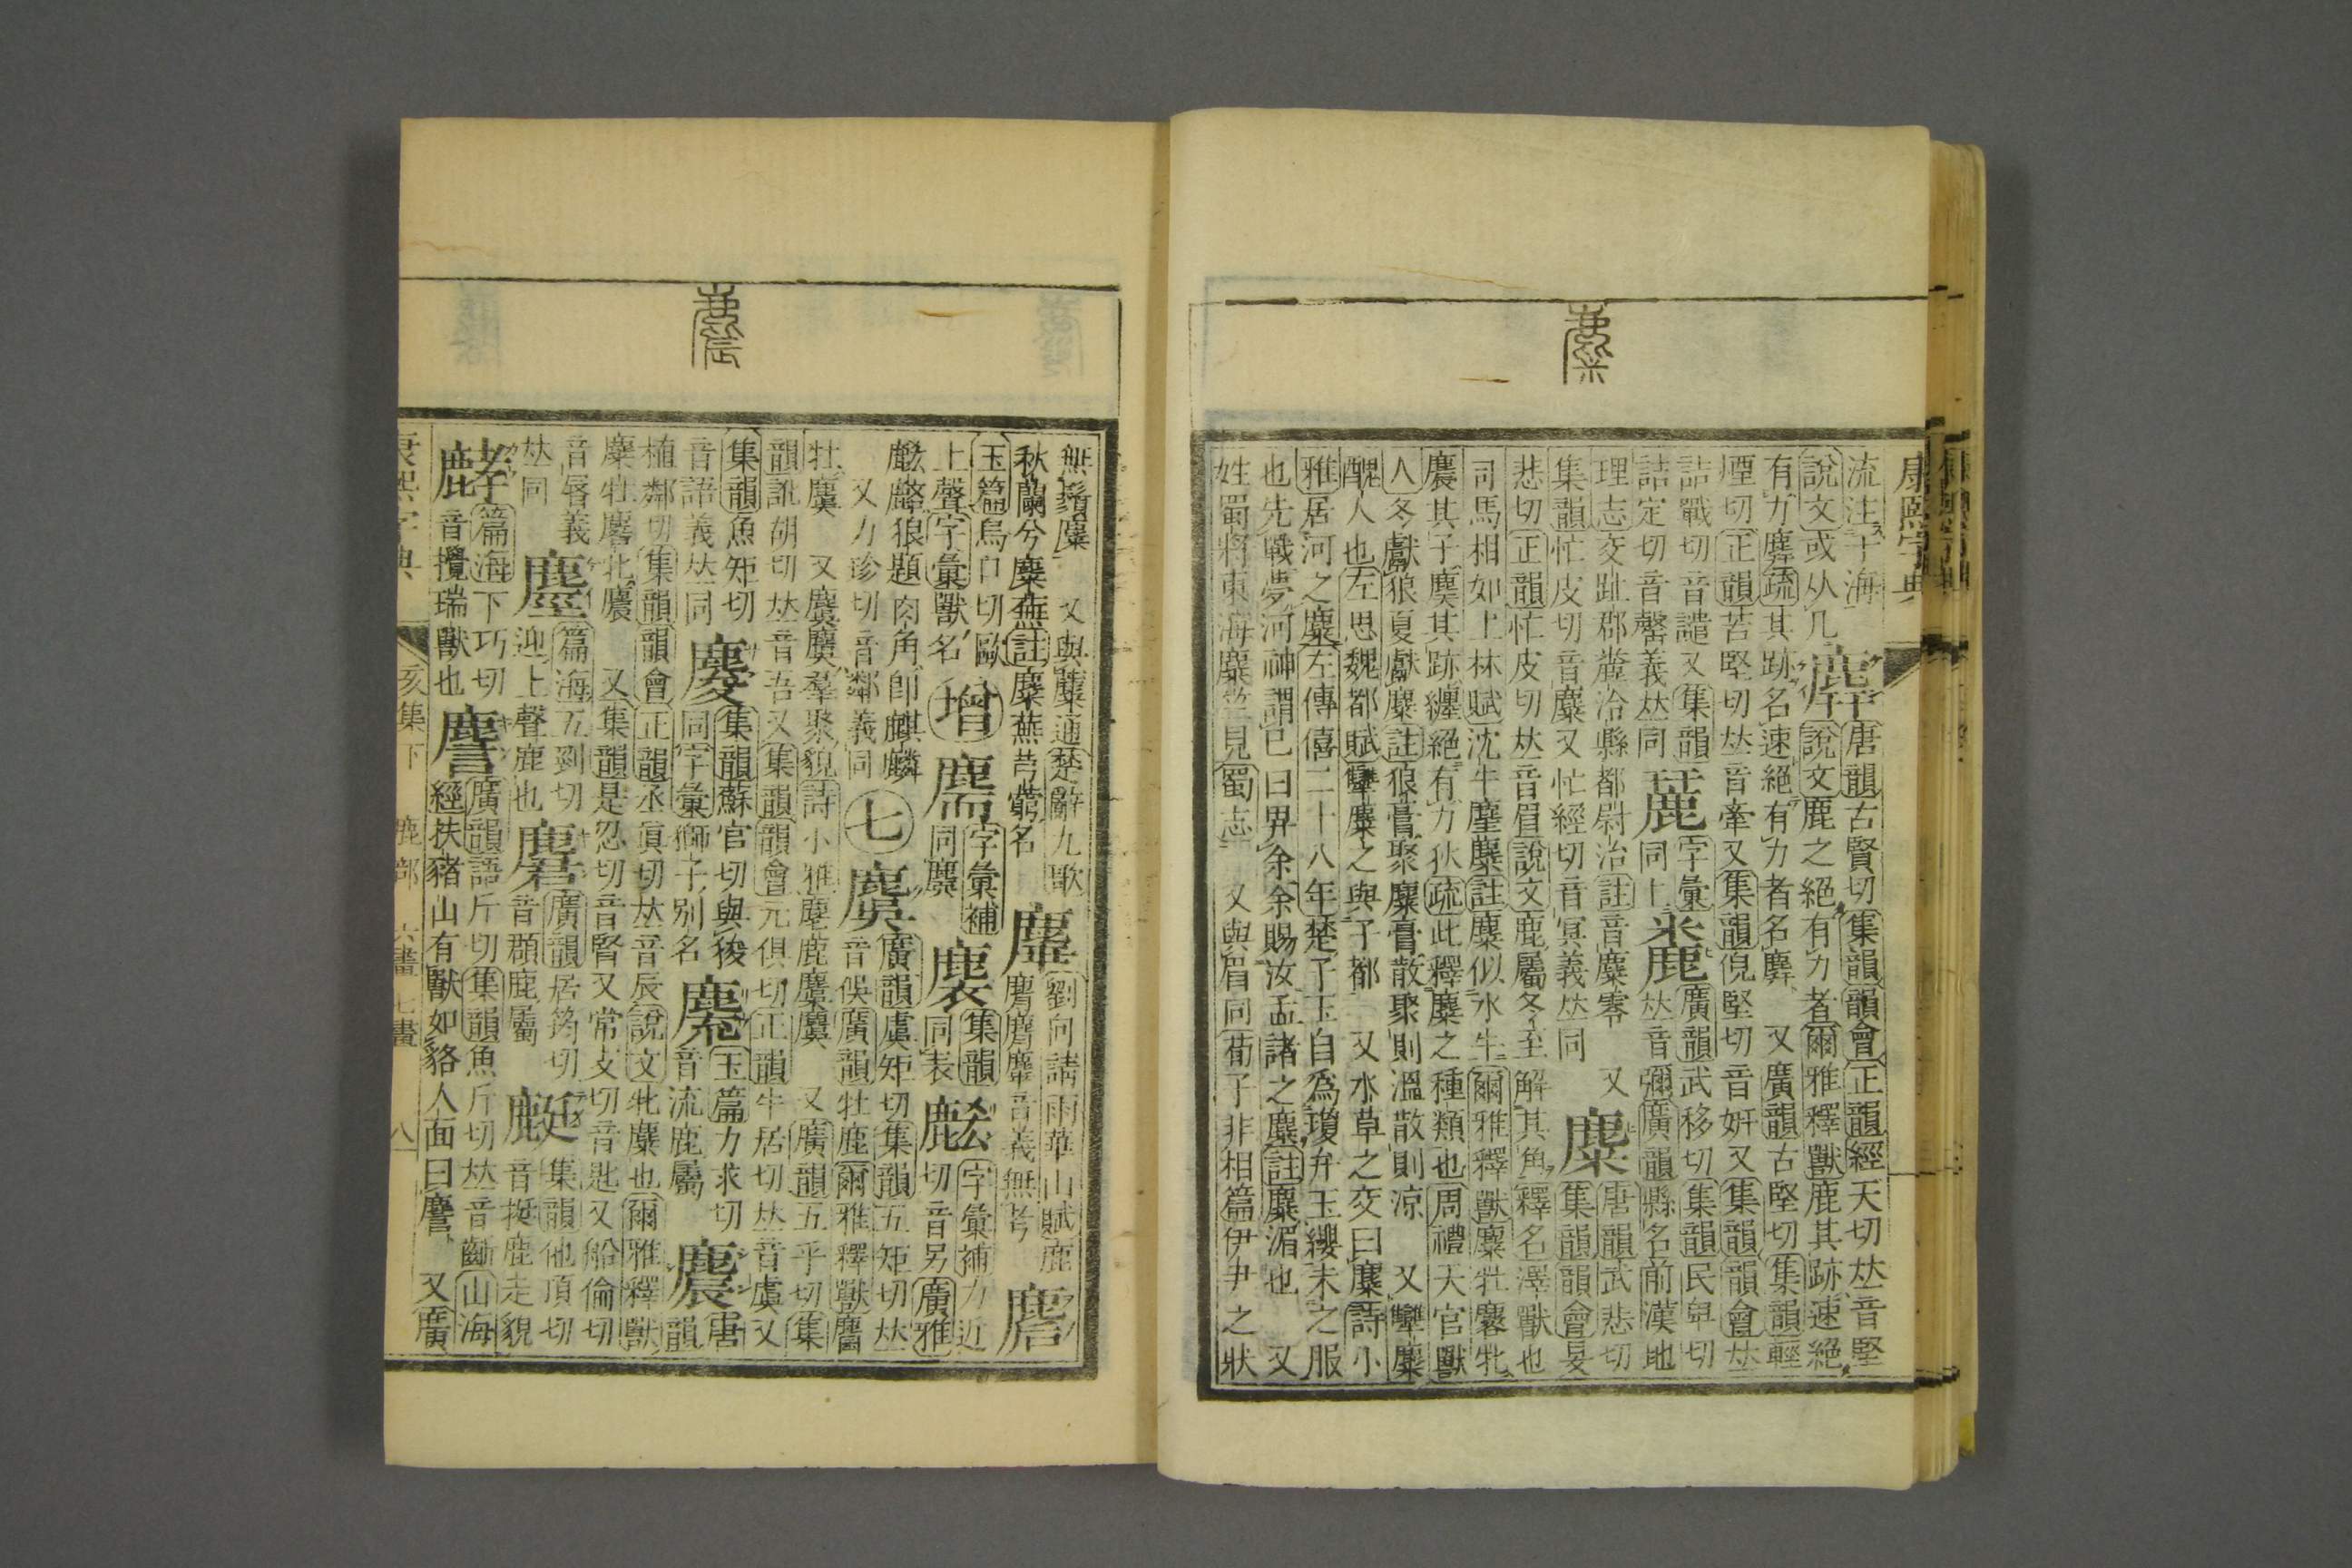 康熙字典
麋
流注十海
說文或从几
麉
唐韻古賢切集韻韻會正韻經天切𠀤音堅
說文鹿之絕有力者爾雅釋獸鹿其跡速絕
有力麉疏其跡名速絕有力者名麉 又廣韻古堅切集韻輕
煙切正韻苦堅切𠀤音牽又集韻倪堅切音姸又集韻韻會𠀤
詰戰切音譴又集韻
詰定切音罄義𠀤同
字彙
同上
廣韻武移切集韻民𤰞切
𠀤音彌廣韻縣名前漢地
理志交趾郡𪎮泠縣都尉治註音麋零 又
集韻忙皮切音麋又忙經切音冥義𠀤同
麋
唐韻武悲切
集韻韻會旻
悲切正韻忙皮切𠀤音眉說文鹿屬冬至解其角釋名澤獸也
司馬相如上林賦沈牛麈麋註麋似水牛爾雅釋獸麋牡麔牝
麎其子䴠其跡纏絕有力狄疏此釋麋之種類也周禮天官獸
人冬獻狼夏獻麋註狼膏聚麋膏散聚則溫散則涼 又孿麋
醜人也左思魏都賦孿麋之與子都 又水草之交曰麋詩小
雅居河之麋左傳僖二十八年楚子玉自爲瓊弁玉纓未之服
也先戰夢河神謂已曰畀余余賜汝孟諸之麋註麋湄也 又
姓蜀將東海麋竺見蜀志 又與眉同荀子非相篇伊尹之狀
麎
無鬚麋 又與蘪通楚辭九歌
秋蘭兮麋蕪註麋蕪芎藭名
劉向請雨華山賦鹿
麕麕音義無考
玉篇烏口切歐
上聲字彙獸名
增
字彙補
同麇
集韻
同表
麮
字彙補力近
切音另廣雅
麮麟狼題肉角卽麒麟
又力珍切音鄰義同
七
麌
廣韻虞矩切集韻五矩切𠀤
音俁廣韻牡鹿爾雅釋獸麕
牡麌 又麌麌羣聚貌詩小雅麀鹿麌麌 又廣韻五乎切集
韻訛胡切𠀤音吾又集韻韻會元俱切正韻牛居切𠀤音虞又
集韻魚矩切
音語義𠀤同
集韻蘇官切與狻
同字彙獅子別名
玉篇力求切
音流鹿屬
麎
唐韻
植鄰切集韻韻會正韻丞眞切𠀤音辰說文牝麋也爾雅釋獸
麋牡麔牝麎 又集韻是忍切音腎又常支切音匙又船倫切
音脣義
𠀤同
篇海五到切
迎上聲鹿也
麏
廣韻居筠切
音頵鹿屬
集韻他頂切
音挺鹿走貌
篇海下巧切
音攪瑞獸也
廣韻語斤切集韻魚斤切𠀤音齗山海
經扶豬山有獸如貉人面曰䴦 又廣
康熙字典 亥集下 鹿部 六畫 七畫 八